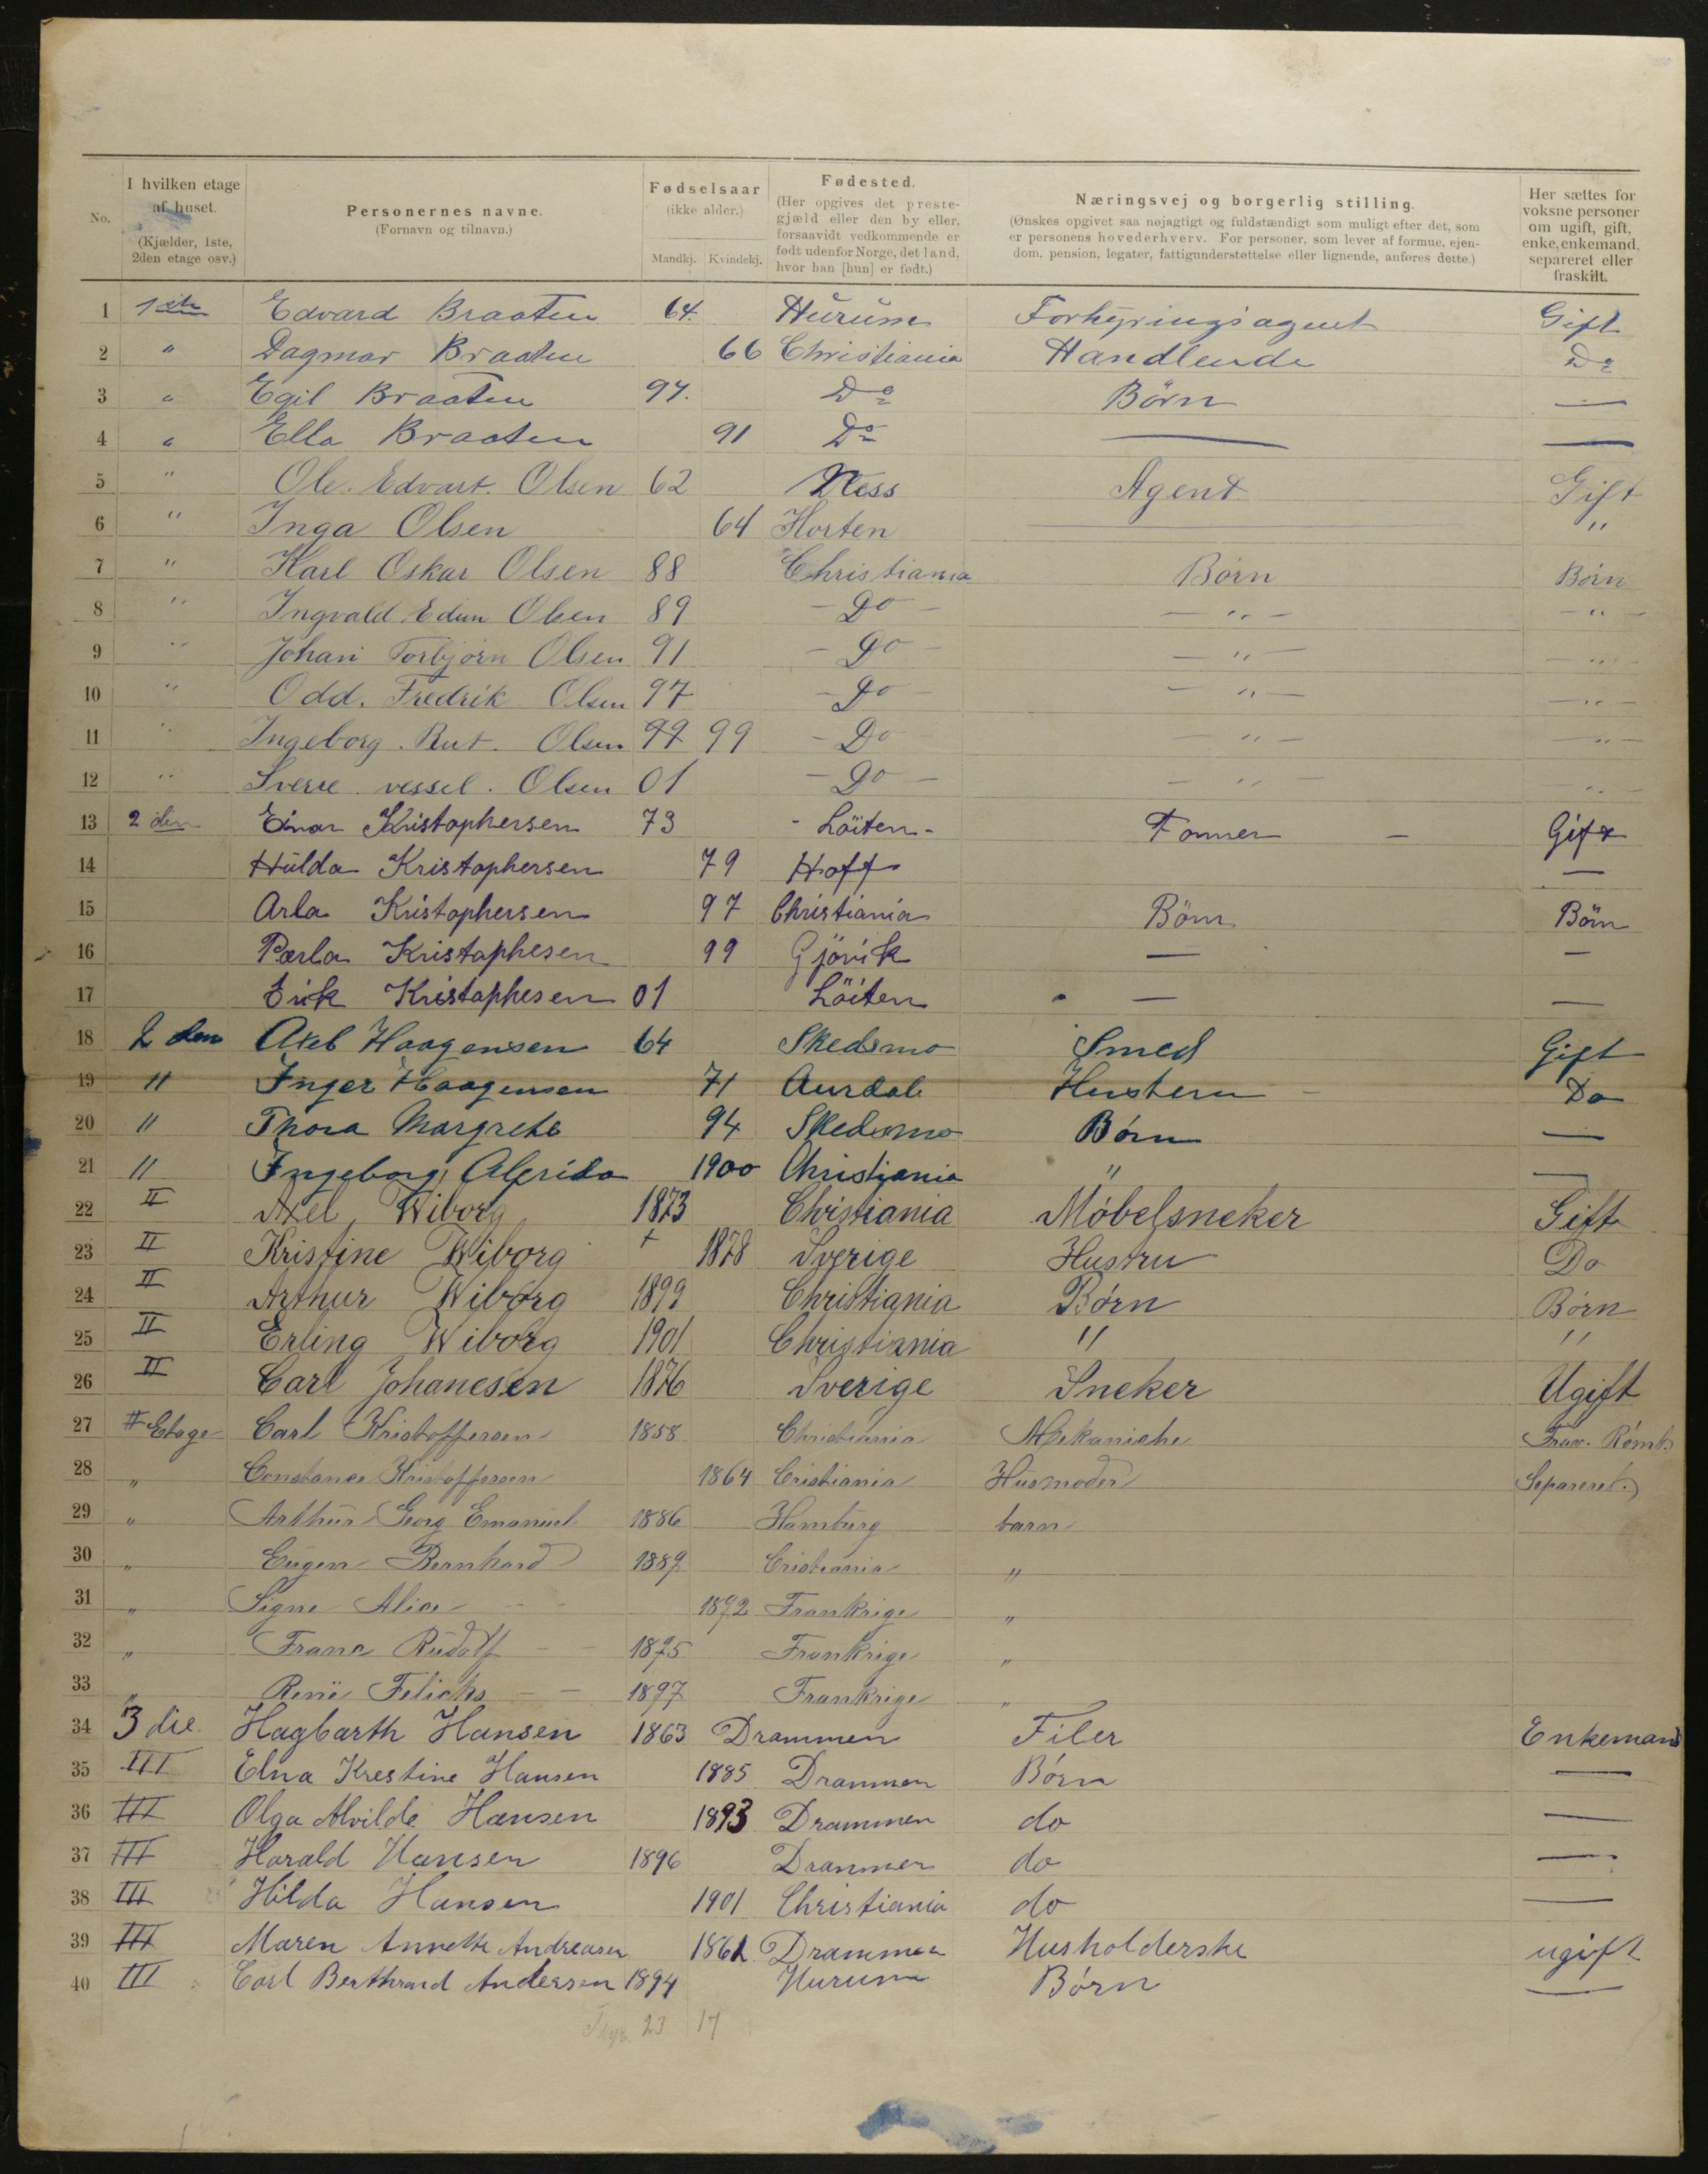 No.
I hvilken etage af huset. (Kjælder, 1ste, 2den etage osv.)
Personernes navne. (Fornavn og tilnavn.)
Fødselsaar (ikke alder.) Mandkj. Kvindekj.
Fødested. (Her opgives det prestegjæld eller den by eller, forsaavidt vedkommende er født udenfor Norge, det land, hvor han [hun] er født.)
Næringsvej og borgerlig stilling. (Ønskes opgivet saa nøjagtigt og fuldstændigt som muligt efter det, som er personens hovederhverv. For personer, som lever af formue, ejendom, pension, legater, fattigunderstøttelse eller lignende, anføres dette.)
Her sættes for voksne personer om ugift, gift, enke, enkemand, separeret eller fraskilt.
1 1ste Edvard Braaten 64. Hurum Forhyringsagent Gift
2 " Dagmar Braaten 66 Christiania Handlende Do
3 " Egil Braaten 97. Do Börn —
4 " Ella Braaten 91 Do — —
5 " Ole. Edvart. Olsen 62 Ness Agent Gift
6 " Inga Olsen 64 Horten "
7 " Karl Oskar Olsen 88 Christiania Börn Börn
8 " Ingvald Edvin Olsen 89 – Do – – " – – " –
9 " Johan Torbjörn Olsen 91 – Do – – " – – " –
10 " Odd. Fredrik Olsen 97 – Do – – " – – " –
11 " Ingeborg. Rut. Olsen 99 99 – Do – " – – " –
12 " Sverre vessel. Olsen 01 – Do – – " – "
13 2 den Einar Kristophersen 73 - Löiten - Former – Gift
14 Hulda Kristophersen 79 Hoff —
15 Arla Kristophersen 97 Christiania Börn Börn
16 Pærla Kristophesen 99 Gjövik — —
17 Erik Kristophesen 01 Löiten — —
18 2 den Axel Haagensen 64 Skedsmo Smed Gift
19 " Inger Haagensen 71 Aurdal Hustru Do
20 " Thora Margrete 94 Skedsmo Børn —
21 " Ingeborg Alfrida 1900 Christiania " —
22 II Axel Wiborg 1873 Christiania Møbelsneker Gift
23 II Kristine Wiborg + 1878 Sverige Hustru Do
24 II Arthur Wiborg 1899 Christiania Børn Børn
25 II Erling Wiborg 1901 Christiania " "
26 II Carl Johanesen 1876 Sverige Sneker Ugift
27 II Etage Carl Kristoffersen 1858 Christiania Mekaniche
28 " Constance Kristoffersen 1864 Cristiania Husmoder Separeret.
29 " Arthur Georg Emanuel 1886 Hamburg barn
30 " Eugen Bernhard 1889 Cristiania "
31 " Signe Alice – – 1892 Frankrige "
32 " Franc Rudolf – – 1895 Frankrige "
33 " René Felichs – – 1897 Frankrige "
34 3 die. Hagbarth Hansen 1863 Drammen Filer Enkemand
35 III Elna Krestine Hansen 1885 Drammen Børn —
36 III Olga Alvilde Hansen 1893 Drammen do —
37 III Harald Hansen 1896 Drammen do —
38 III Hilda Hansen 1901 Christiania do —
39 III Maren Annette Andreasen 1861 Drammen Husholderske ugift
40 III Carl Berthrand Andersen 1894 Hurum Børn —
23 17